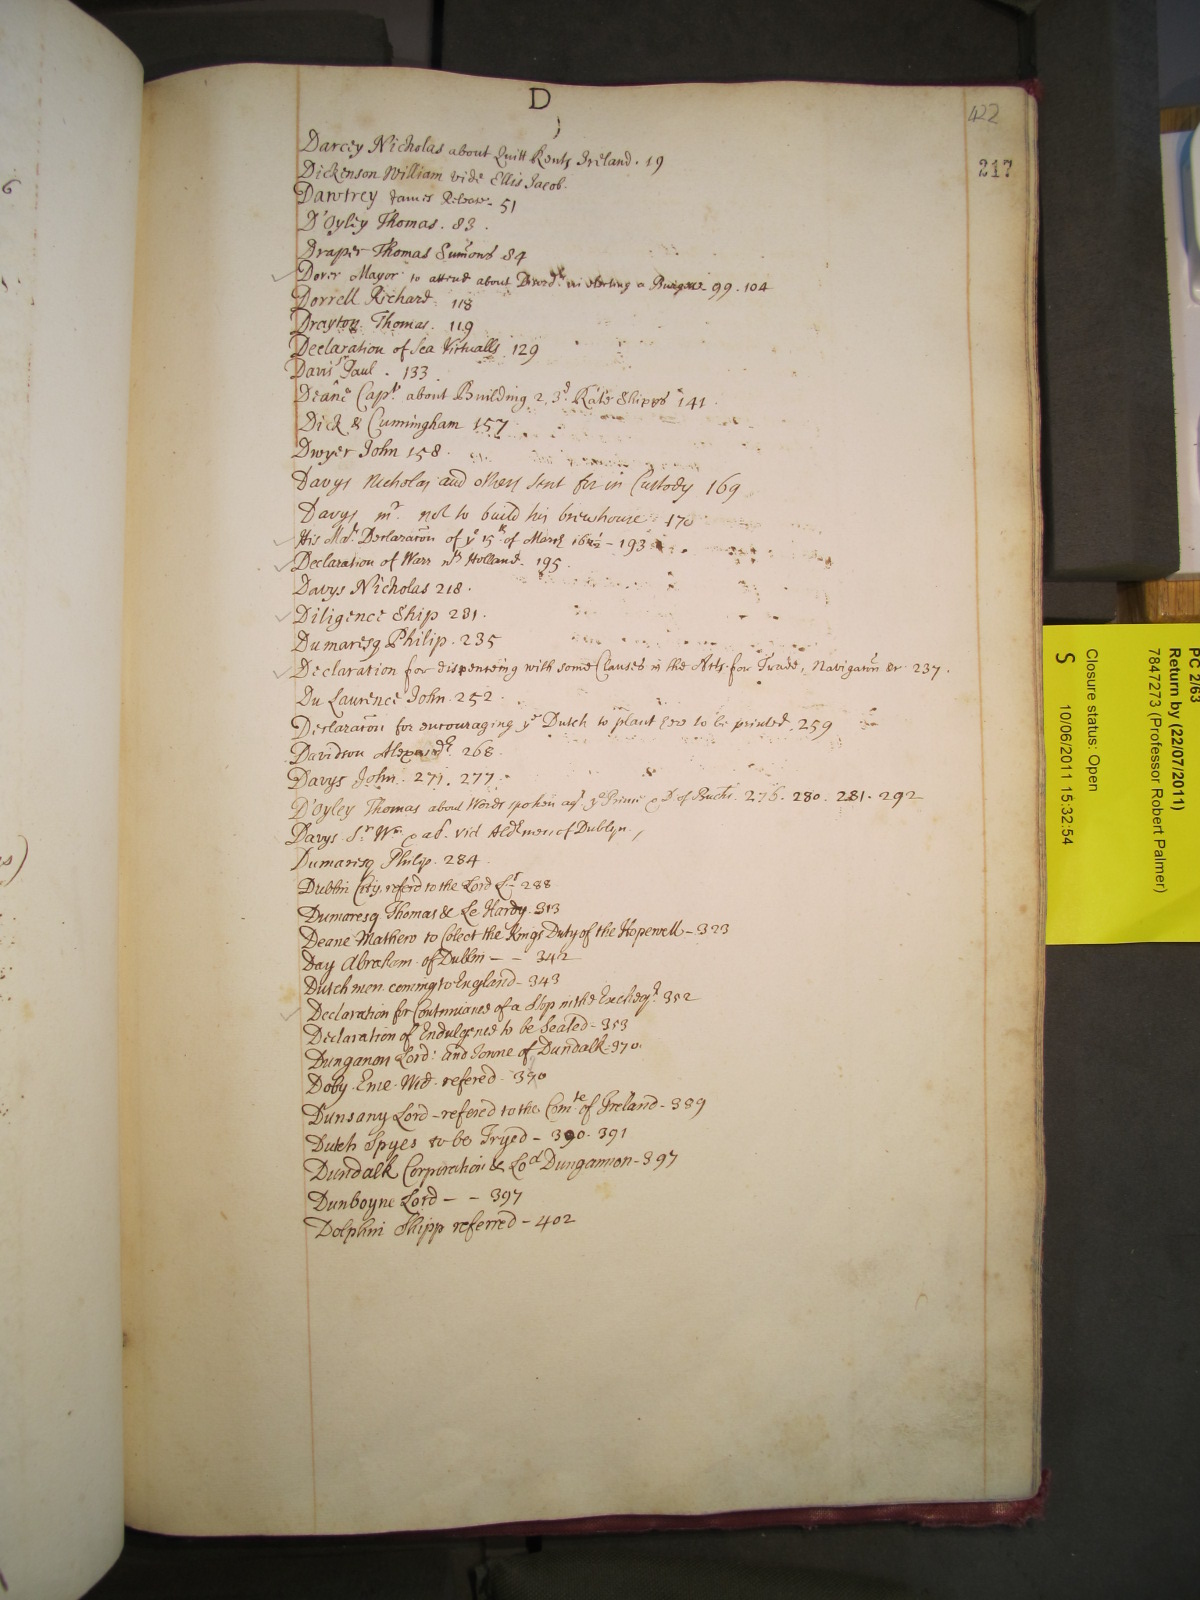 D
422
217
Darcey Nicholas about Quitt Rents Ireland. 19
Dickenson William vide Ellis Jacob.
Dawtrey James Release. 51
D'Oyley Thomas. 83.
Draper Thomas Sumons 84
Dover Mayor to attend about in electing a Burgess 99. 104
Dorrell Richard. 118
Drayton Thomas. 119
Declaration of Sea Victualls 129
Davis Paul. 133
Deane Capt. about Building 2. 3d. Rate Shipps 141
Dick & Cunningham 157
Dwyer John 158.
Davys Nicholas and others sent for in Custody 169
Davys mr. not to build his brewhouse 170
His Mats. Declaracon of ye 15th of March 167½ - 193
Declaration of Warr wth Holland. 195.
Davys Nicholas 218.
Diligence Ship 231.
Dumaresq Philip. 235
Declaration for dispensing with some Clauses in the Acts for Trade, Navigacon &c 237.
Du Laurence John. 252.
Declaracon for encouraging ye Dutch to plant here to be printed. 259
Davidson Alexandr. 268.
Davys John. 271. 277.
D'Oyley Thomas about Words spoken agt. ye D. of Bucks. 276. 280. 281. 292
Davys Sr. Wm. vid Aldermen of Dublyn.
Dumaresq Philip. 284.
Dublin City, referd to the Lord Lt. 288
Dumaresq Thomas & Le Hardy. 313
Deane Mathew to Colect the Kings Duty of the Hopewell - 323
Day Abraham of Dublin - - 342
Dutchmen coming to England - 343
Declaration for Continuance of a Stop in the Excheqr. 352
Declaration of Endulgence to be Sealed - 353
Dunganon Lord: and Towne of Dundalk - 370.
Doby Eme. Wid. refered - 370
Dunsany Lord - refered to the Comte of Ireland - 389
Dutch Spyes to be Tryed - 390. 391
Dundalk Corporation & Lod Dungannon - 397
Dunboyne Lord - - 397
Dolphin Shipp referred - 402
PC 2/63
Return by (22/07/2011)
7847273 (Professor Robert Palmer)
Closure status: Open
S 10/06/2011 15:32:54